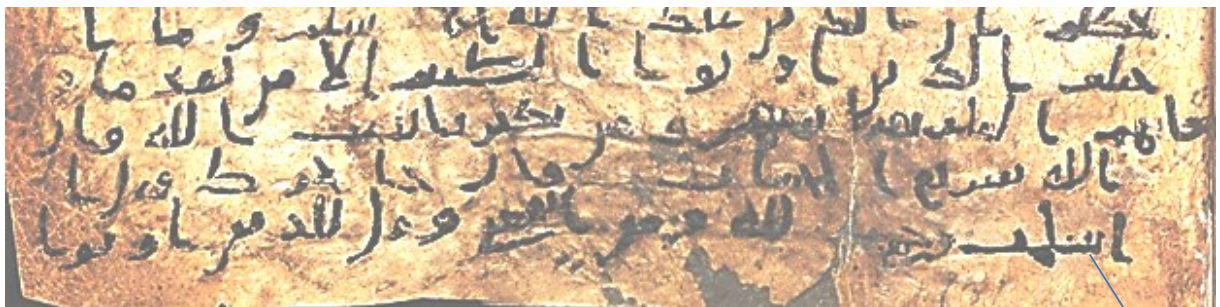 لحكيم ان الدين عند الله الاسلم وما ا
ختلف الذين اوتوا الكتب الا من بعد ما
جاهم العلم بغيا بينهم ومن يكفر بايت الله فان
الله سريع الحساب فان حاجوك فقل
اسلمت وجهي لله ومن اتبعن وقل للذين اوتوا